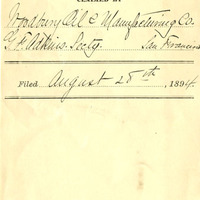 CLAIMED BY
Woodbury Oil & Manufacturing Co.
Adkins. Secty. San Francisco
Filed August 28th, 1894.